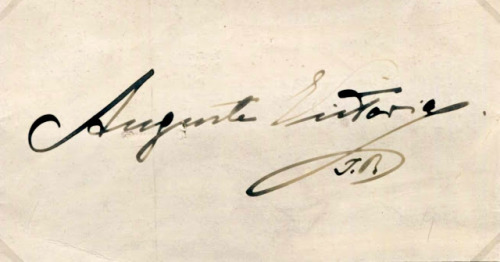 Auguste Victoria.
I.R.